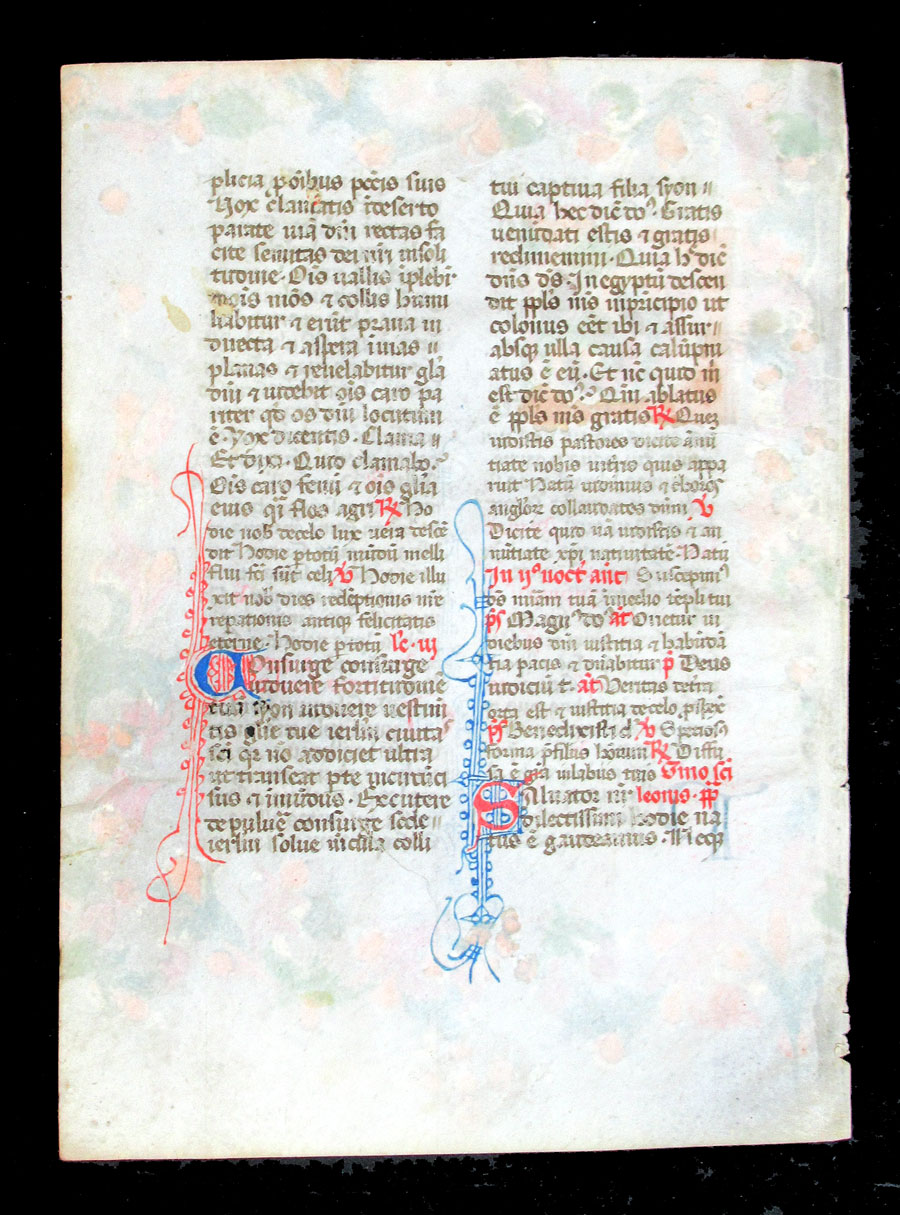 plicia p oı̄bus pctı̄s suis
Vox clamātis ī deserto
parate uiā dn̄i rectas fa
cite semitas dei nr̄i in soli
tudine · Oīs uallis īplebit̄
⁊ oīs mōs ⁊ collis humi
liabitur ⁊ erūt praua in
directa ⁊ aspera ī uias
planas ⁊ reuelabitur glā
dn̄i ⁊ uidebit oīs caro pa
riter qđ os dn̄i locutum
ē · Vox dicentis · Clama
Et dixi · Quid clamabo ·
Oīs caro fenū ⁊ oīs glīa
eius q̄i flos agri ℟ Ho
die nob̄ de celo lux uera descē
dit Hodie p totū mūdū melli
flui fc̄i sūt celi ℣ Hodie illu
xit nob̄ dies redēptionis nr̄e
reparationis antiq̄ felicitatis
eterne · Hodie p totū le · iij
Consurge consurge
induere fortitudinē
tuā syon induere uestimē
tis glīe tue ierlm̄ ciuita
sc̄i qr̄ nō addiciet ultra
ut transeat p te incircūci
sus ⁊ īmūdus · Excutere
de puluē consurge sede
ierlm̄ solue uincla colli
tui captiua filia syon
Quia hec dic̄ doꝰ · Gratis
uenūdati estis ⁊ gratis
redimemini · Quia h̄ dic̄
dn̄s d̄s · In egyptū descen
dit pp̄ls m̄s in principio ut
colonus eēt ibi ⁊ assur
absq ulla causa calūpni
atus ē eū · Et nc̄ quid m̄
est dic̄ doꝰ · Qm̄ ablatus
ē pp̄ls m̄s gratis ℟ Quez
uidistis pastores dicite ānū
tiate nobis in tr̄is quis appa
ruit Natū uidimus ⁊ choros
anglor̄ collaudātes dn̄m ℣
Dicite quid nā uidistis ⁊ an
nūtiate xp̄i natiuitatē · Natū
In ijº noct̄ ant̄ Suscepimꝰ
d̄s miām tuā ī medio tēpli tui
p̄s Magnꝰ doꝰ at̄ Orietur in
diebus dn̄i iustitia ⁊ habūdā
tia pacis ⁊ dn̄abitur p̄ Deus
iudiciū t · at̄ Veritas de tr̄a
orta est ⁊ iustitia de celo
p̄s Benedixisti d̄ ℣ Speciosꝰ
forma p̄ filiis hoīum ℟ Diffu
sa ē grā in labiis tuis Sm̄o sc̄i
Saluator nr̄ leonis · pp̄
dilectissimi hodie na
tus ē gaudeamus · Necq